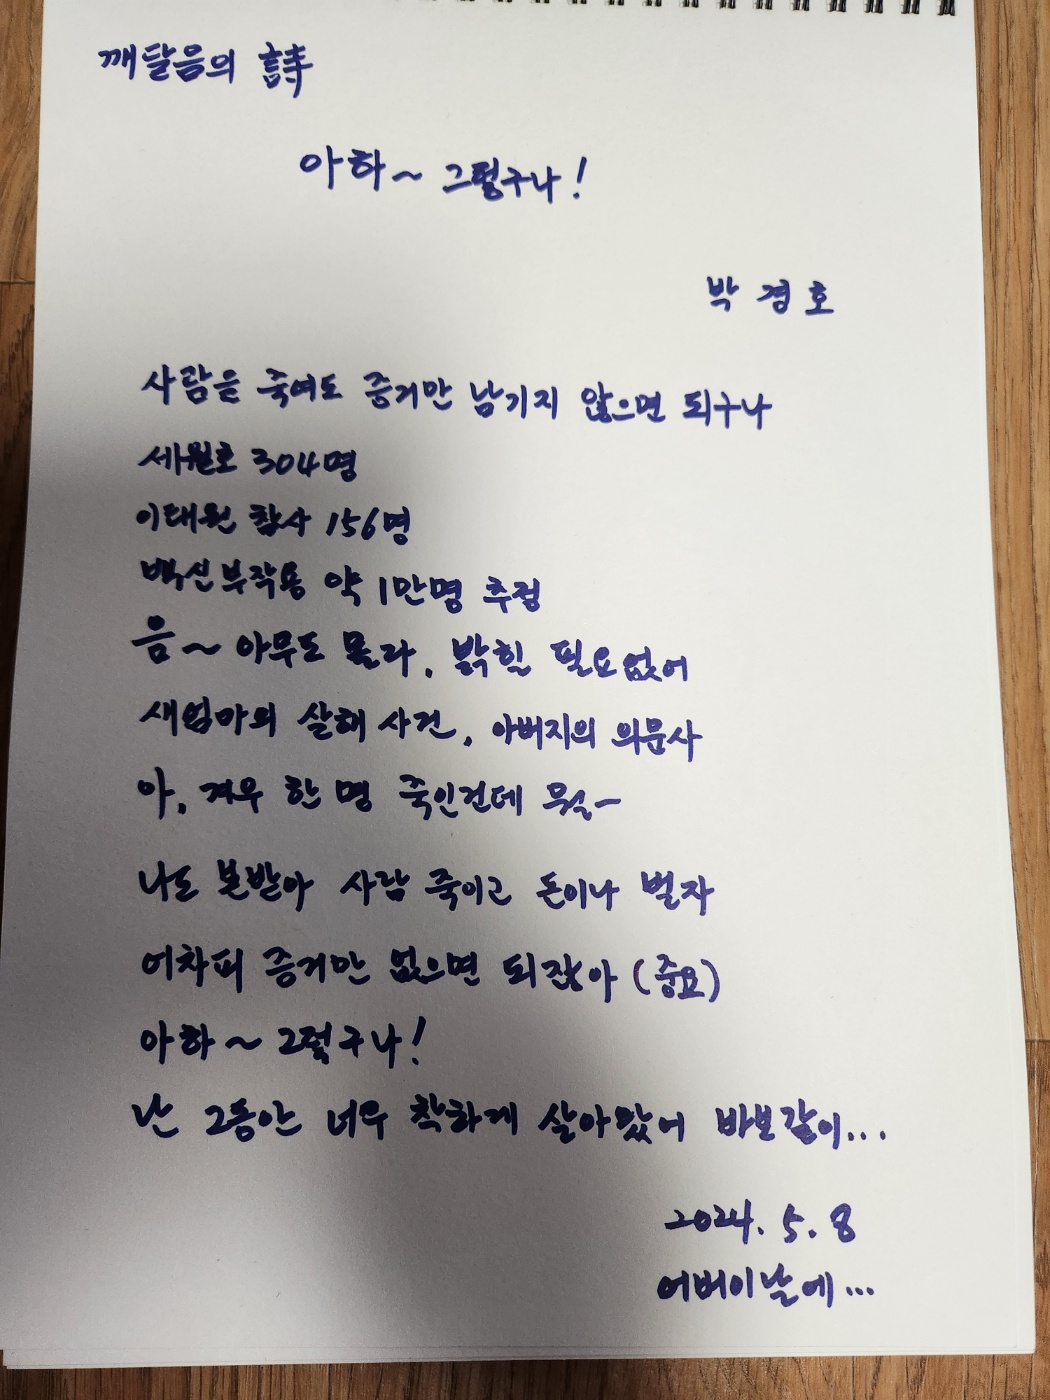 깨달음의 詩
아하~ 그렇구나!
박 경 호
사람을 죽여도 증거만 남기지 않으면 되구나
세월호 304명
이태원 참사 156명
백신부작용 약 1만명 추정
음~ 아무도 몰라, 밝힐 필요없어
새엄마의 살해 사건, 아버지의 의문사
아, 겨우 한 명 죽인건데 뭘~
나도 본받아 사람 죽이고 돈이나 벌자
어차피 증거만 없으면 되잖아 (중요)
아하~ 그렇구나!
난 그동안 너무 착하게 살아왔어 바보같이...
2024. 5. 8
어버이날에...